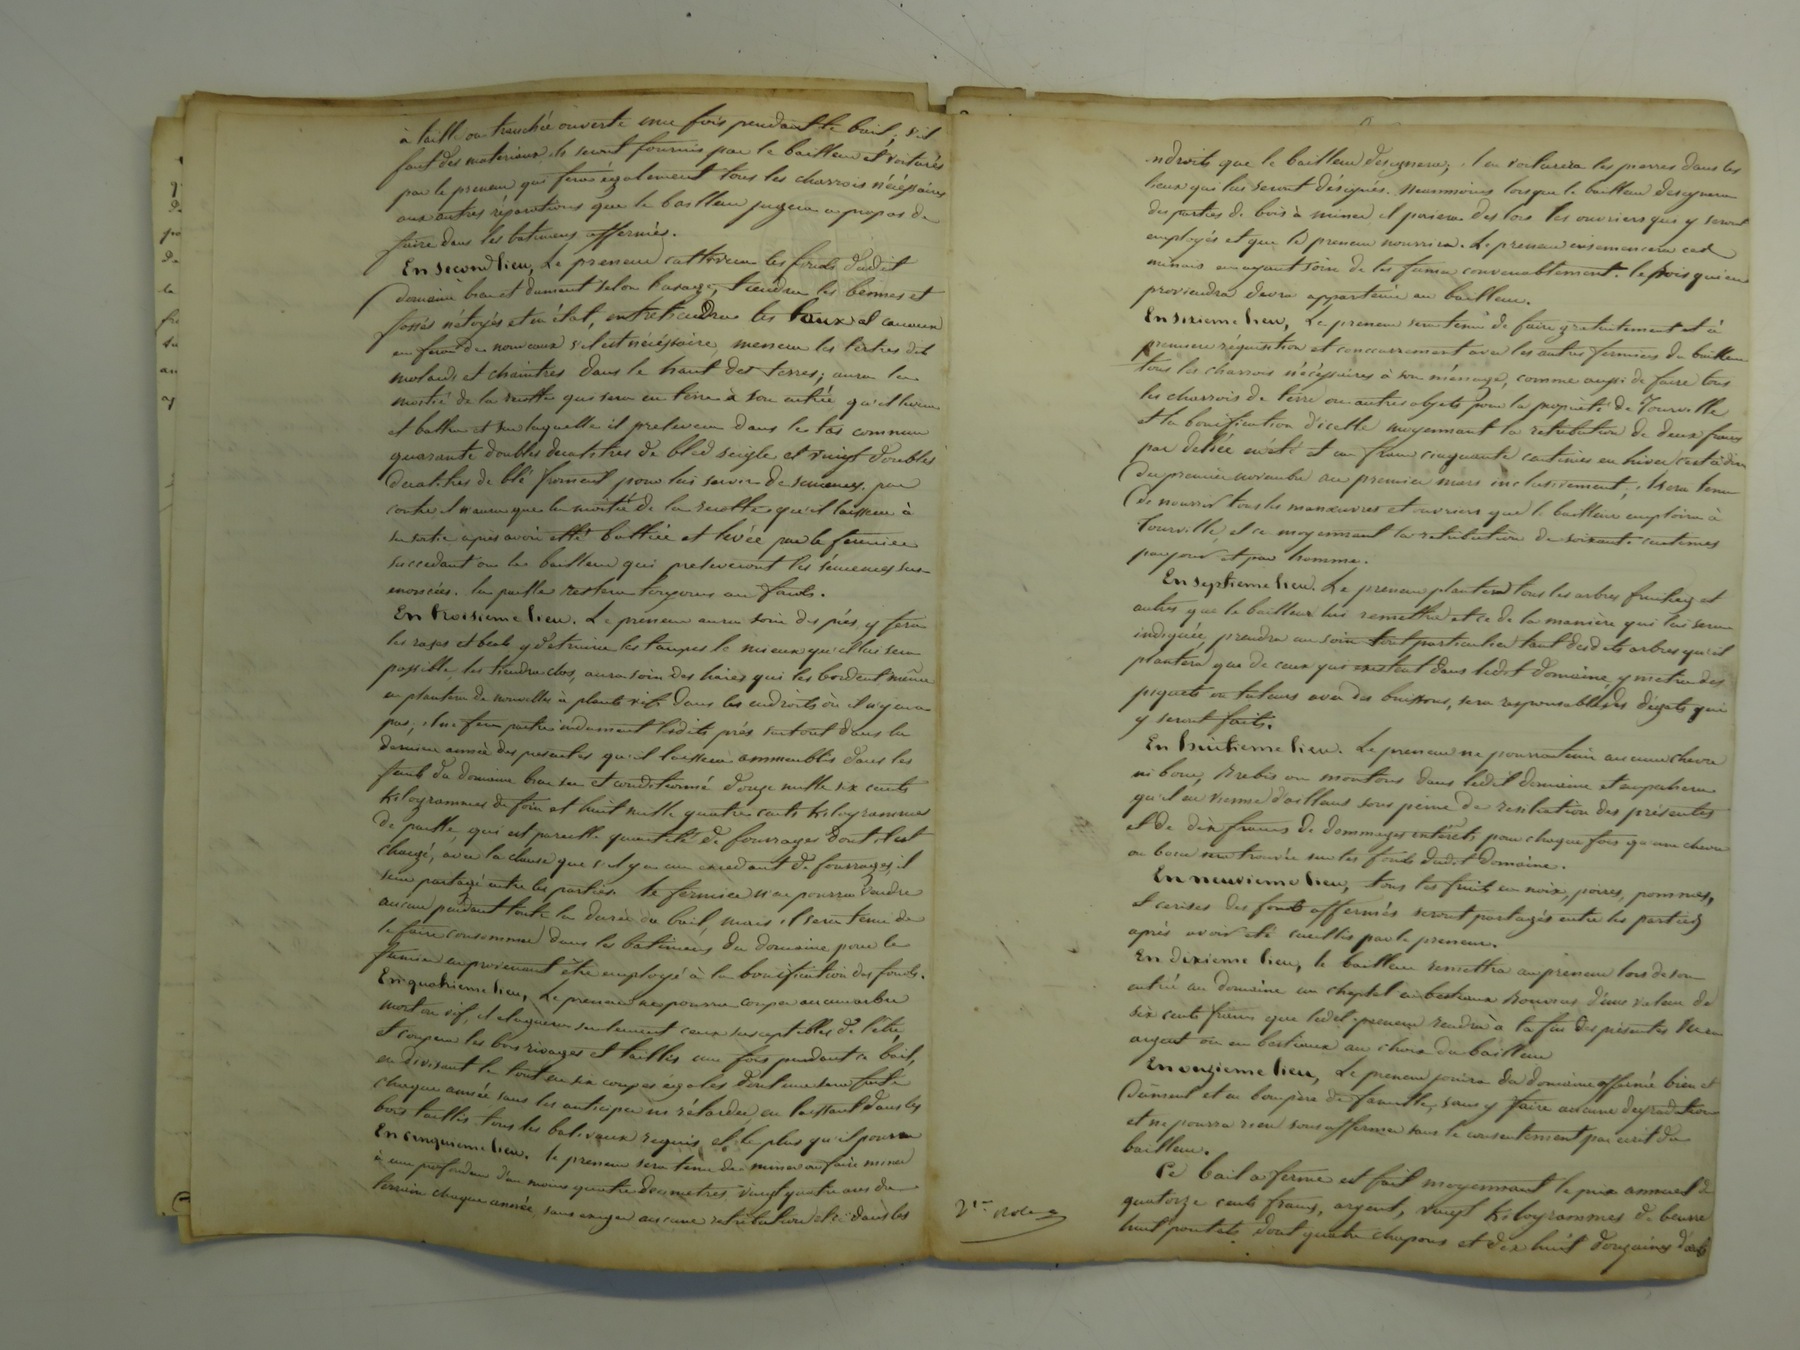 à taille ou tranchée ouverte une fois pendant le bail, s'il
faut des materiaux ils seront fournis par le bailleur et voiturés
par le preneur qui fera également tous les charrois nécéssaires
aux autres réparations que le bailleur jugera apropos de
faire dans les batimens affermés.
En second lieu, Le preneur cultivera les fonds dudit
domaine bien et dument selon l'usage, tiendra les bennes et
fossés nétoyés et en état, entretiendra les
en fera de nouveaux s'il est nécéssaire, menera les tertres des
molards et chaintres dans le haut des terres; aura la
moitié de la recolte qui sera en terre à son entrée qu'il levera
et battra et sur laquelle il prelevera dans le tas commun
quarante doubles decalitres de bled seigle et vingt doubles
decalitres de blé froment pour lui servir de semences. par
contre il n'aura que la moitié de la recolte qu'il laissera à
sa sortie après avoir etté battüe et livée par le fermier
succedant ou le bailleur qui preleveront les sémences sus-
enoncées. la paille restera toujours au fonds.
En troisieme lieu. Le preneur aura soin des prés, y fera
les rases et beals y detruira les taupes le mieux qu'il lui sera
possible, les tiendra clos, aura soin des haies qui les bordent même
en plantera de nouvelles à plants vifs dans les endroits où il n'y en a
pas; il ne fera paitre indument lesdits prés surtout dans la
derniere année des présentes qu'il laissera ammeublés dans les
fonds du domaine bien sec et conditionné d'onze mille six cents
kilogrammes de foin et huit mille quatre cents kilogrammes
de paille, qui est pareille quantité de fourrages dont il est
chargé, avec la clause que s'il y en a un excedant de fourrages, il
sera partagé entre les parties. le fermier n'en pourra vendre
aucun pendant toute la durée du bail, mais il sera tenu de
le faire consommer dans les batimens du domaine pour le
fumier en provenant être employé à la bonification des fonds.
En quatrieme lieu, Le preneur ne pourra couper aucun arbre
mort ou vif, il elaguera seulement ceux susceptibles de l'être,
et coupera les bois rivages et taillis une fois pendant ce bail,
en divisant le tout en six coupes égales dont une sera faite
chaque année sans les anticiper ni rétarder, en laissant dans les
bois taillis tous les baliveaux requis et le plus qu'il pourra
En cinquieme lieu. le preneur sera tenu de miner ou faire miner
à une profondeur d'au moins quatre decimetres vingt quatre ares de
terrain chaque année, sans exiger aucune retribution et ce dans les
ndroits que le bailleur designera; il en voiturera les pierres dans les
lieux qui lui seront désignés. Neanmoins lorsque le bailleur designera
des parties de bois à miner il paiera des lors les ouvriers qui y seront
employés et que le preneur nourrira. Le preneur ensemencera ces
minais en ayant soin de les fumer convenablement. le bois qui en
proviendra devra appartenir au bailleur.
En sixieme lieu, Le preneur sera tenu de faire gratuitement et à
premiere réquisition et concurremment avec les autres fermiers du bailleur
tous les charrois nécéssaires à son ménage, comme aussi de faire tous
les charrois de terre ou autres objets pour la propriété de Tourville
et la bonification d'icelle moyennant la retribution de deux francs
par deliée en été et un franc cinquante centimes en hiver c'est à dire
du premier novembre au premier mars inclusivement; il sera tenu
de nourrir tous les manœuvres et ouvriers que le bailleur emploiera à
Tourville, et ce moyennant la retribution de soixante centimes
par jour et par homme.
En septieme lieu. Le preneur plantera tous les arbres fruitiers et
autres que le bailleur lui remettra et ce de la manière qui lui sera
indiquée, prendra un soin tout particulier tant desdits arbres qu'il
plantera que de ceux qui existent dans ledit domaine, y mettra des
piquets ou tuteurs avec des buissons, sera responsable des dégats qui
y seront faits.
En huitieme lieu. Le preneur ne pourra tenir aucune chevre
ni bouc, brebis ou moutons dans ledit domaine et empechera
qu'il en vienne d'ailleurs sous peine de resiliation des présentes
et de dix francs de dommages intérêts pour chaque fois qu'une chevre
ou bouc sera trouvée sur les fonds dudit domaine.
En neuvieme lieu, tous les fruits en noix, poires, pommes,
et cerises des fonds affermés seront partagés entre les parties
après avoir été cueillis par le preneur.
En dixieme lieu, le bailleur remettra au preneur lors de son
entrée au domaine un cheptel en bestiaux d'une valeur de
six cents francs que ledit preneur rendra à la fin des présentes
argent ou en bestiaux au choix du bailleur
En onzieme lieu, Le preneur jouira du domaine affermé bien et
dûment et en bon pere de famille, sans y faire aucune dégradation
et ne pourra rien sous affermer sans le consentement par écrit du
bailleur.
Ce bail à ferme est fait moyennant le prix annuel de
quatorze cents francs, argent, vingt kilogrammes de beurre
huit poulets dont quatre chapons et dix huit douzaines d'œufs